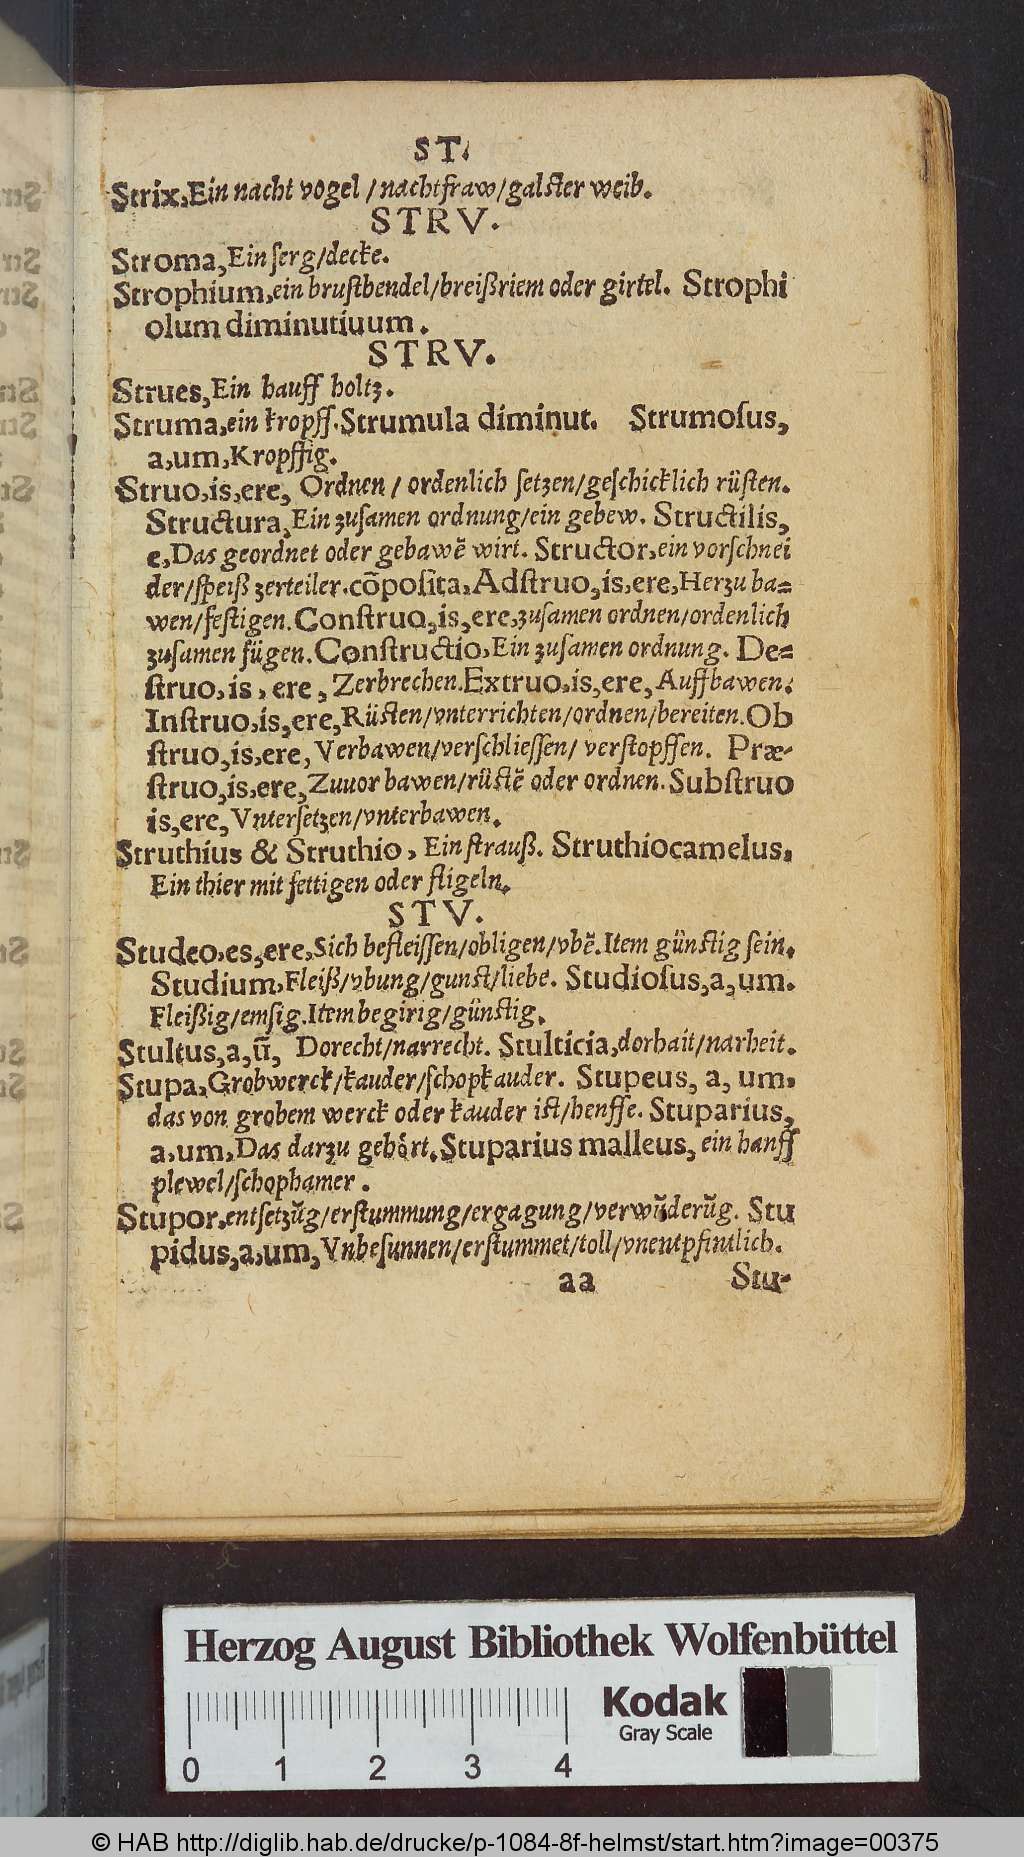 ST.
Strix, Ein nacht vogel / nachtfraw / galster weib.
STRV.
Stroma, Ein ſerg / decke.
Strophium, ein bruſtbendel / breißriem oder girtel. Strophi
olum diminutiuum.
STRV.
Strues, Ein hauff holtz.
Struma, ein kropff. Strumula diminut. Strumoſus,
a, um, Kropffig.
Struo, is, ere, Ordnen / ordenlich ſetzen / geſchicklich rüſten.
Structura, Ein zuſamen ordnung / ein gebew. Structilis,
e, Das geordnet oder gebawẽ wirt. Structor, ein vorſchnei
der / ſpeiß zerteiler. cõpoſita, Adſtruo, is, ere, Herzu ba=
wen / feſtigen. Conſtruo, is, ere, zuſamen ordnen / ordenlich
zuſamen fügen. Conſtructio, Ein zuſamen ordnung. De=
ſtruo, is, ere, Zerbrechen. Extruo, is, ere, Auffbawen.
Inſtruo, is, ere, Rüſten / vnterrichten / ordnen / bereiten. Ob
ſtruo, is, ere, Verbawen / verſchlieſſen / verſtopffen. Præ-
ſtruo, is, ere, Zuuor bawen / rüſtẽ oder ordnen. Subſtruo
is, ere, Vnterſetzen / vnterbawen.
Struthius & Struthio, Ein ſtrauß. Struthiocamelus.
Ein thier mit fettigen oder fligeln.
STV.
Studeo, es, ere, Sich befleiſſen / obligen / vbẽ. Item günſtig ſein.
Studium, Fleiß / vbung / gunſt / liebe. Studioſus, a, um.
Fleißig / emſig. Item begirig / günſtig.
Stultus, a, ũ, Dorecht / narrecht. Stulticia, dorhait / narheit.
Stupa, Grobwerck / kauder / ſchopkauder. Stupeus, a, um.
das von grobem werck oder kauder iſt / henffe. Stuparius,
a, um, Das darzu gehört. Stuparius malleus, ein hanff
plewel / ſchophamer.
Stupor, entſetzũg / erſtummung / ergagung / verwũderũg. Stu
pidus, a, um, Vnbeſunnen / erſtummet / toll / vnentpfintlich.
aa Stu-
Herzog August Bibliothek Wolfenbüttel
Kodak
Gray Scale
0 1 2 3 4
© HAB http://diglib.hab.de/drucke/p-1084-8f-helmst/start.htm?image=00375